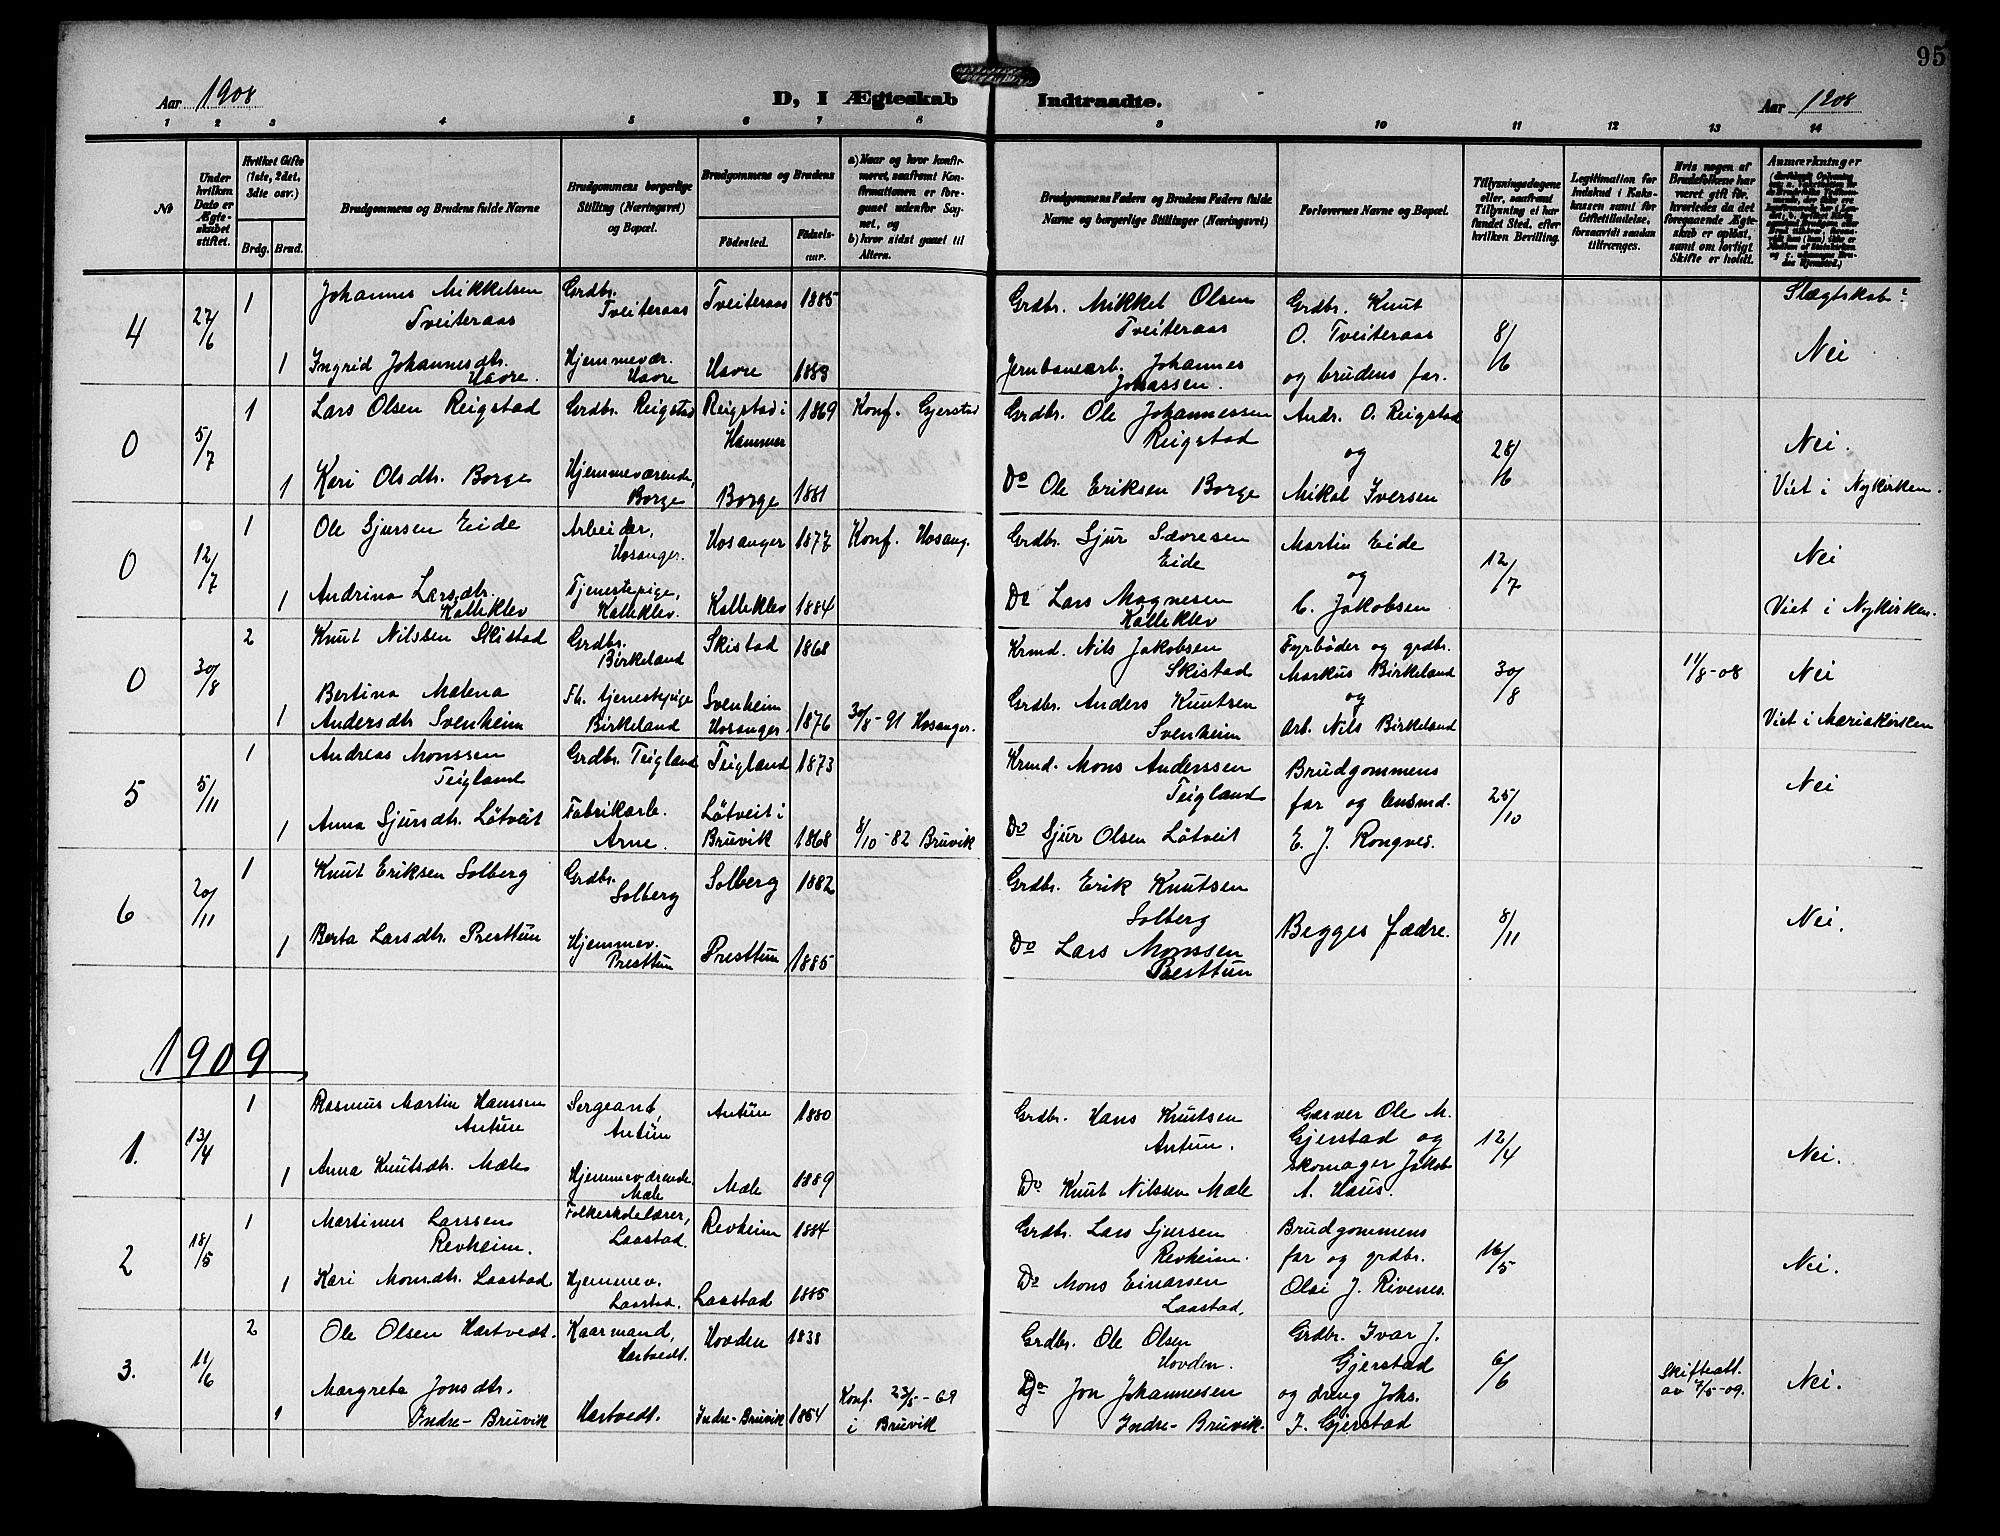 95
Aar 1908
D, I Ægteskab Indtraadte.
Aar 1908
1 2 3 4 5 6 7 8 9 10 11 12 13 14
No
Under hvilken Dato er Ægteskabet stiftet.
Hvilket Gifte (1ste, 2det, 3die osv.)
Brdg. Brud.
Brudgommens og Brudens fulde Navne
Brudgommens borgerlige Stilling (Næringsvei) og Bopæl.
Brudgommens og Brudens
Födested. Födsels-aar.
a) Naar og hvor konfirmeret, saafremt Konfirmationen er foregaaet udenfor Sognet, og
b) hvor sidst gaaet til Alters.
Brudgommens Faders og Brudens Faders fulde Navne og borgerlige Stillinger (Næringsvei).
Forlovernes Navne og Bopæl.
Tillysningsdagene eller, saafremt Tillysning ei har fundet Sted, efter hvilken Bevilling.
Legitimation for Indskud i Enkekassen samt for Giftetilladelse, forsaavidt saadan tiltrænges.
Hvis nogen af Brudefolkene har været gift för, hvorledes da det foregaaende Ægteskab er oplöst, samt om lovligt Skifte er holdt.
Anmærkninger
4
27/6
1
Johannes Mikkelsen
Tveiteraas
Grdbr.
Tveiteraas
Tveiteraas
1885
Grdbr. Mikkel Olsen
Tveiteraas
Grdbr. Knut
O. Tveiteraas
8/6
Slægtskab?
1
Ingrid Johannesdtr.
Havre.
Hjemmevær.
Havre
Havre
1889
Jernbanearb. Johannes
Johassen.
og brudens far.
Nei
0
5/7
1
Lars Olsen Reigstad
Grdbr. Reigstad
Reigstad i
Hammer
1869
Konf. Gjerstad
Grdbr. Ole Johannessen
Reigstad
Andr. O. Reigstad
og
28/6
Nei.
1
Kari Olsdtr. Borge
Hjemmeværende,
Borge
Borge
1881
Do Ole Eriksen Borge
Mikal Iversen
Viet i Nykirken.
0
12/7
1
Ole Sjursen Eide
Arbeider,
Hosanger.
Hosanger
1877
Konf. Hosang.
Grdbr. Sjur Sævresen
Eide
Martin Eide
og
12/7
Nei
1
Andrina Larsdtr.
Kalleklev
Tjenestepige,
Kalleklev.
Kalleklev
1884
Do Lars Magnesen
Kalleklev
C. Jakobsen
Viet i Nykirken.
0
30/8
2
Knut Nilssen Skistad
Grdbr.
Birkeland
Skistad
1868
Krmd. Nils Jakobsen
Skistad
Fyrbøder og grdbr.
Markus Birkeland
og
30/8
11/8-08
Nei
1
Bertina Malena
Andersdtr Svenheim
Fh. tjenestepige
Birkeland
Svenheim
Hosanger.
1876
30/8-91 Hosanger.
Grdbr. Anders Knutsen
Svenheim
arb. Nils Birkeland
Viet i Mariakirken
5
5/11
1
Andreas Monssen
Teigland
Grdbr. Teigland
Teigland
1873
Krmd. Mons Anderssen
Teigland
Brudgommens
far og lensmd.
25/10
Nei
1
Anna Sjursdtr. Løtveit
Fabrikarb.
Arne.
Løtveit i
Bruvik
1868
8/10-82 Bruvik
Do Sjur Olsen Løtveit
E. J. Rongves.
6
20/11
1
Knut Eriksen Solberg
Grdbr.
Solberg
Solberg
1882
Grdbr. Erik Knutsen
Solberg
Begges fædre.
8/11
Nei.
1
Berta Larsdtr. Presttun
Hjemmev.
Presttun
Presttun
1885
Do Lars Monssen
Presttun
1909
1.
13/4
1
Rasmus Martin Hanssen
Antun
Sergeant,
Antun
Antun
1880
Grdbr. Hans Knutsen
Antun.
Garver Ole M.
Gjerstad og
12/4
Nei.
1
Anna Knutsdtr. Mæle
Hjemmeværende
Mæle
Mæle
1889
Do Knut Nilssen Mæle
skomager Jakob
A. Haus.
2
18/5
1
Martinus Larssen
Revheim.
Folkeskolelærer,
Laastad.
Revheim
1884
Grdbr. Lars Sjursen
Revheim.
Brudgommens
far og grdbr.
16/5
Nei.
1
Kari Monsdtr. Laastad
Hjemmev.
Laastad.
Laastad
1885
Do Mons Einarsen
Laastad.
Olai J. Rivenes.
3.
11/6
2
Ole Olsen Hartvedt.
Kaarmand,
Hartvedt.
Hovden
1838
Grdbr. Ole Olsen
Hovden.
Grdbr. Ivar J.
Gjerstad
6/6
Skifteatt.
av 7/5-09.
Nei.
1
Margreta Jonsdtr.
Indre-Bruvik
Hartvedt.
Indre-Bruvik
1854
Konf. 23/5-69
i Bruvik
Do Jon Johannessen
Indre-Bruvik.
og dreng Johs.
J. Gjerstad